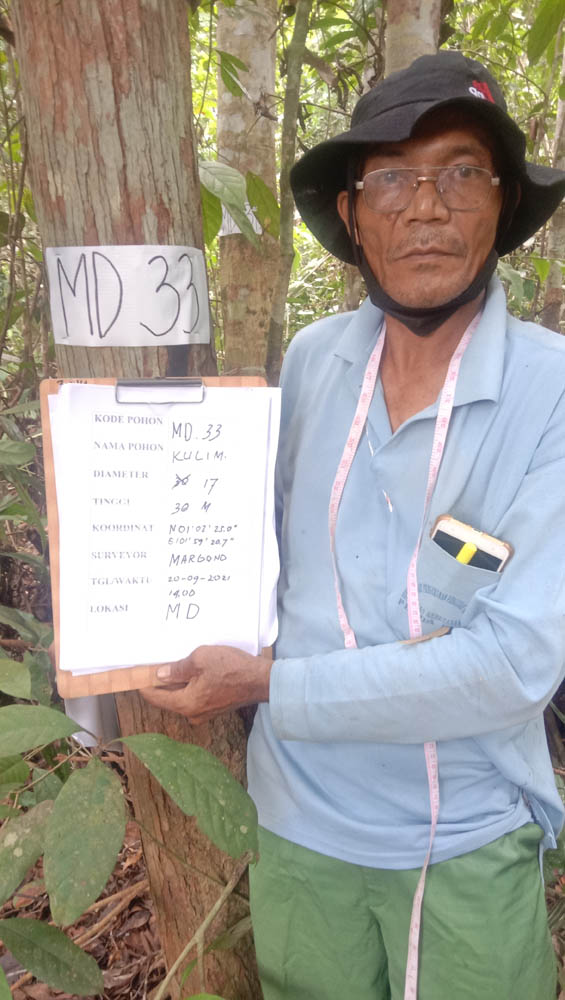 MD 33
KODE POHON MD.33
NAMA POHON KULIM.
DIAMETER 17
TINGGI 30 M
KOORDINAT N 01°03'25.0"
E 101°59'20.7"
SURVEYOR MARGONO
TGL/WAKTU 20-09-2021
14.00
LOKASI MD